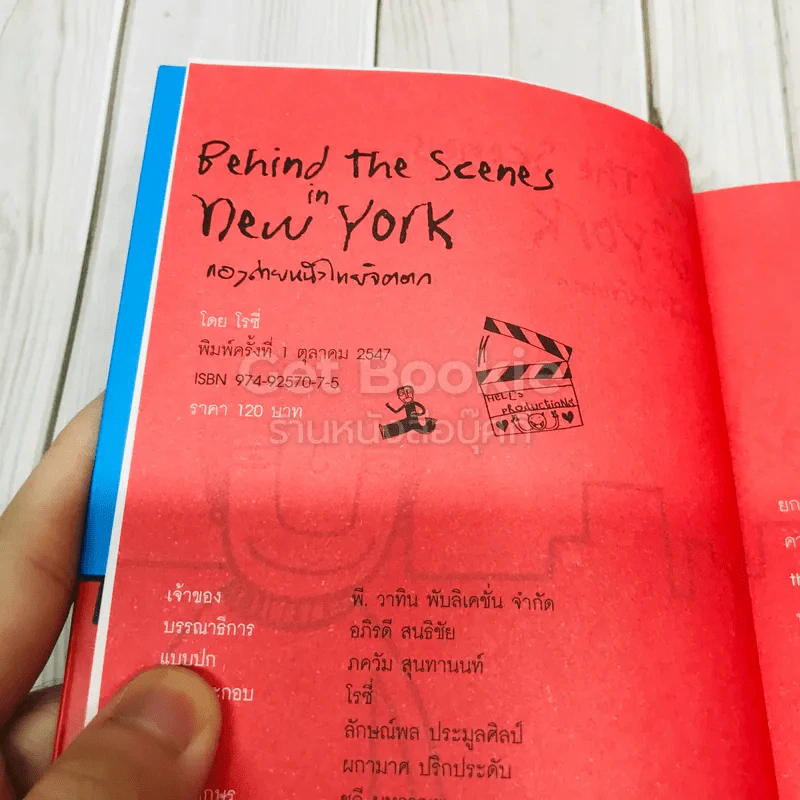 Behind the Scenes
in
New York
กองถ่ายหนังไทยจิตตก
โดย โรซี่
พิมพ์ครั้งที่ 1 ตุลาคม 2547
ISBN 974-92570-7-5
ราคา 120 บาท
HELL'S
PRODUCTIONS
Get Bookie
ร้านหนังสือบุ๊คกี้
เจ้าของ พี. วาทิน พับลิเคชั่น จำกัด
บรรณาธิการ อภิรดี สนธิชัย
แบบปก ภควัม สุนทานนท์
ะกอบ โรซี่
ลักษณ์พล ประมูลศิลป์
ผกามาศ ปริกประดับ